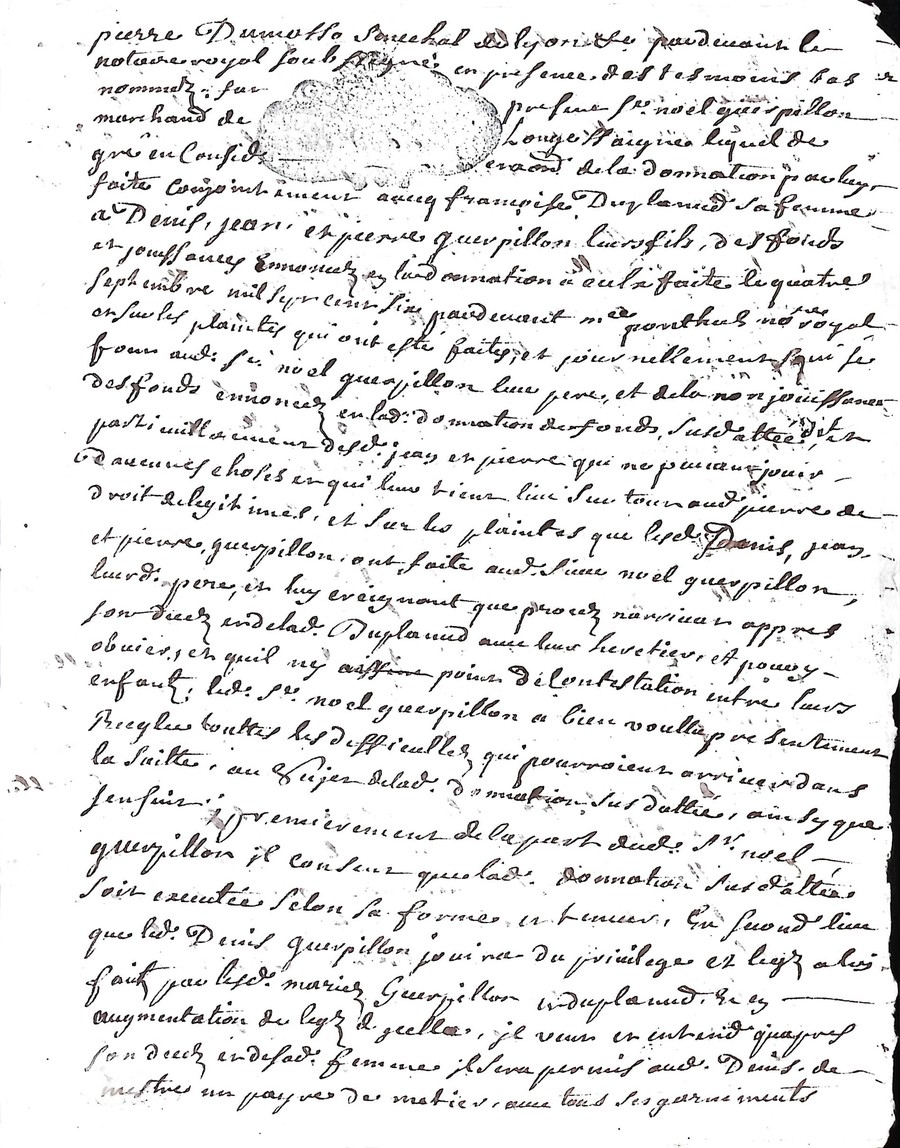 pierre Dumotto Senechal de lyon &e pardevant le
notaire royal soubsigné, en presence des tesmoins bas
nommez, fur present sr. noel guerpillon
marchand de Longessaigne lequel de
gré en Consideraôn de la donnation par luy
faite conjointement avecq françoise Duplanud sa femme
a Denis, jean, et pierre guerpillon leurs fils, des fonds
et jouissances Ennoncez en la donnation a eulx faite le quatre
septembre mil sept cent six pardevant mee ponthus nore royal
et sur les plaintes qui ont esté faites, et journellement qui se
font aud. sr. noel guerpillon leur pere, et de la non jouissance
des fonds ennoncez en lad. donnation de fonds, susdattée, et
particullierement desd. jean et pierre qui ne peuvent jouir
daucunes choses et qui leur tient lieu surtout aud. pierre de
droit de legitimes, et sur les plaintes que lesd. Denis, jean,
et pierre, guerpillon, ont faite aud. sieur noel guerpillon,
leurd. pere, et luy creignant que procez narrivat appres
son decez et de lad. Duplanud avec leurs heretiers, et pour y
obvier, et quil ny aist point de Contestation entre leurs
enfants, led. sr. noel guerpillon a bien voullu presentement
Riegler touttes les difficultez qui pourroient arriver dans
la suitte, au Sujet de lad. donnation, susdattée, ainsy que
sensuit; premierement de la part dud. sr. noel
guerpillon il consent que lad. donnation susdattée
soit executée selon sa forme et teneur, En second lieu
que led. Denis guerpillon jouira du privilege et legz a luy
fait par lesd. mariez Guerpillon et duplanud. Et en
augmentation de legz d'icelle, il veut et entend quapres
son decez et de sad. femme il sera permis aud. Denis. de
mettre un payre de metier, avec tous ses garniments